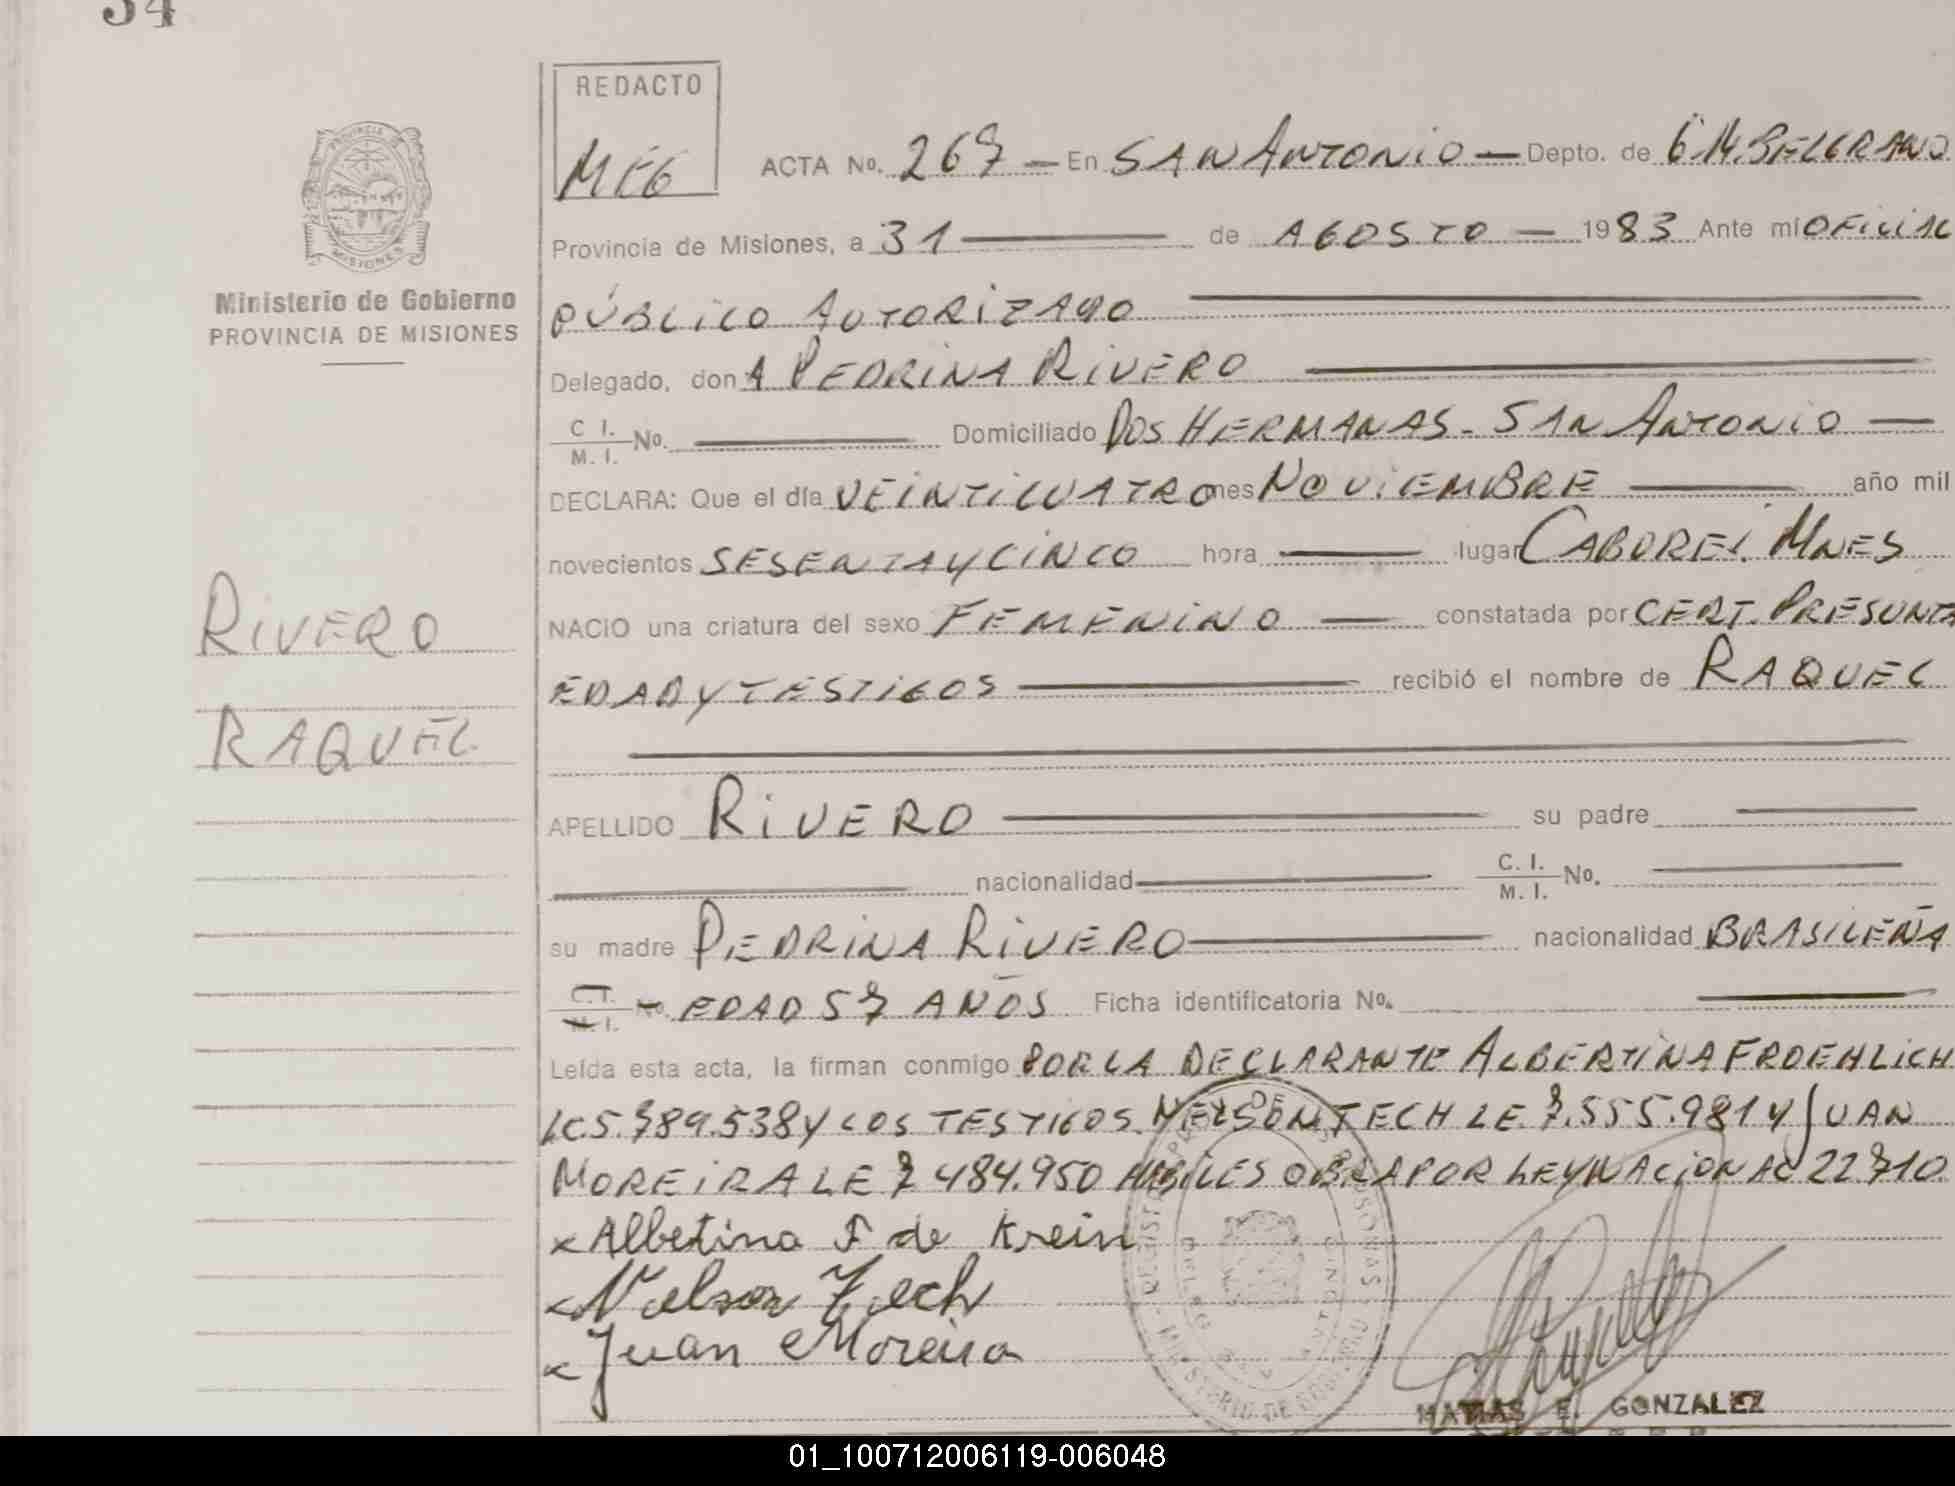 34
REDACTO
MEG
ACTA No. 267 — En SAN ANTONIO — Depto. de G.M. BELGRANO
Provincia de Misiones, a 31 de AGOSTO — 1983 Ante mi OFICIAL
PÚBLICO AUTORIZADO
Delegado, don A PEDRINA RIVERO
C I. M. I. No. Domiciliado DOS HERMANAS - SAN ANTONIO —
DECLARA: Que el día VEINTICUATRO mes NOVIEMBRE año mil
novecientos SESENTA Y CINCO hora lugar CABUREI. MNES
NACIO una criatura del sexo FEMENINO — constatada por CERT. PRESUNTA
EDAD Y TESTIGOS recibió el nombre de RAQUEL
APELLIDO RIVERO su padre
nacionalidad C. I. M. I. No.
su madre PEDRINA RIVERO nacionalidad BRASILEÑA
C. I. M. I. No. EDAD 57 AÑOS Ficha identificatoria No.
Leída esta acta, la firman conmigo POR LA DECLARANTE ALBERTINA FROEHLICH
LC.5.789.538 Y LOS TESTIGOS NELSON TECH LE.7.555.981 Y JUAN
MOREIRA LE 7.484.950 HABILES OBRA POR LEY NACIONAL 22.710.
x Albetina F de Krein
x Nelson Tech
x Juan Moreira
MATIAS E. GONZALEZ
PROVINCIA DE
MISIONES
Ministerio de Gobierno
PROVINCIA DE MISIONES
RIVERO
RAQUEL
01_100712006119-006048